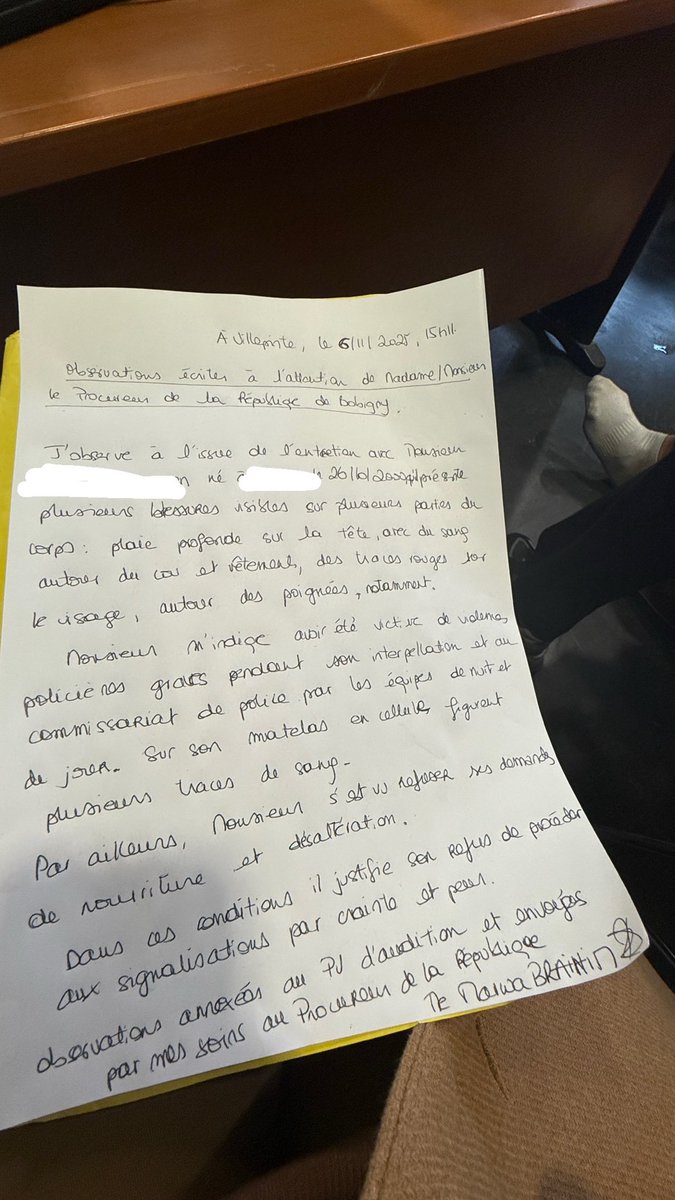 À Villepinte, le 6/11/2025, 15h11.
Observations écrites à l'attention de Madame/Monsieur
le Procureur de la République de Bobigny.
J'observe à l'issue de l'entretien avec Monsieur
né à 26/10/200 présente
plusieurs blessures visibles sur plusieurs parties du
corps : plaie profonde sur la tête, avec du sang
autour du cou et vêtement, des traces rouges sur
le visage, autour des poignées, notamment.
Monsieur m'indique avoir été victime de violences
policières graves pendant son interpellation et au
commissariat de police par les équipes de nuit et
de jour. Sur son matelas en cellule, figurent
plusieurs traces de sang.
Par ailleurs, Monsieur s'est vu refuser ses demandes
de nourriture et désaltération.
Dans ces conditions il justifie son refus de procéder
aux signalisations par crainte et peur.
observations annexées au PV d'audition et envoyées
par mes soins au Procureur de la République
Me Marwa BRAHIM